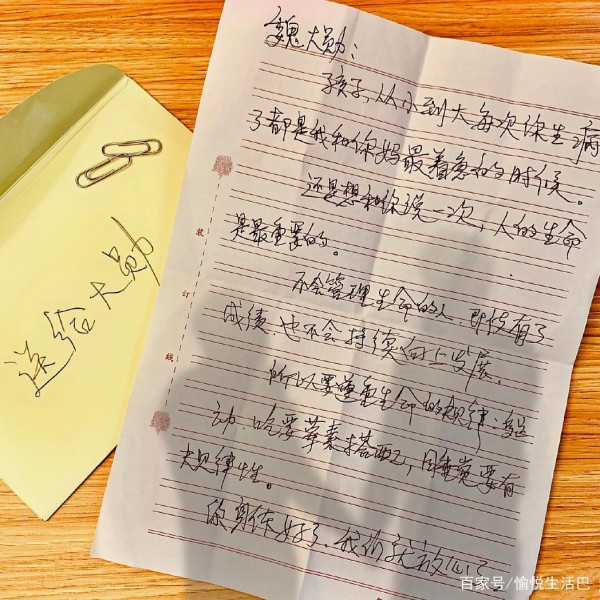 魏大勋：
孩子，从小到大每次你生病
了都是我和你妈最着急的时候。
还是想和你说一次，人的生命
是最重要的。
不会管理生命的人，即使有了
成绩，也不会持续向上发展。
所以要尊重生命的规律：运
动、吃要荤素搭配，睡觉要有
大规律性。
你身体好了、我们就放心了
装
订
线
送给大勋
百家号/愉悦生活巴